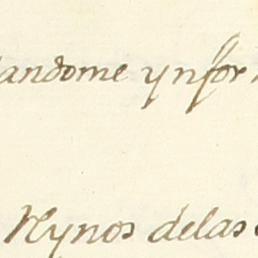 andome ynfor
Rynos delas